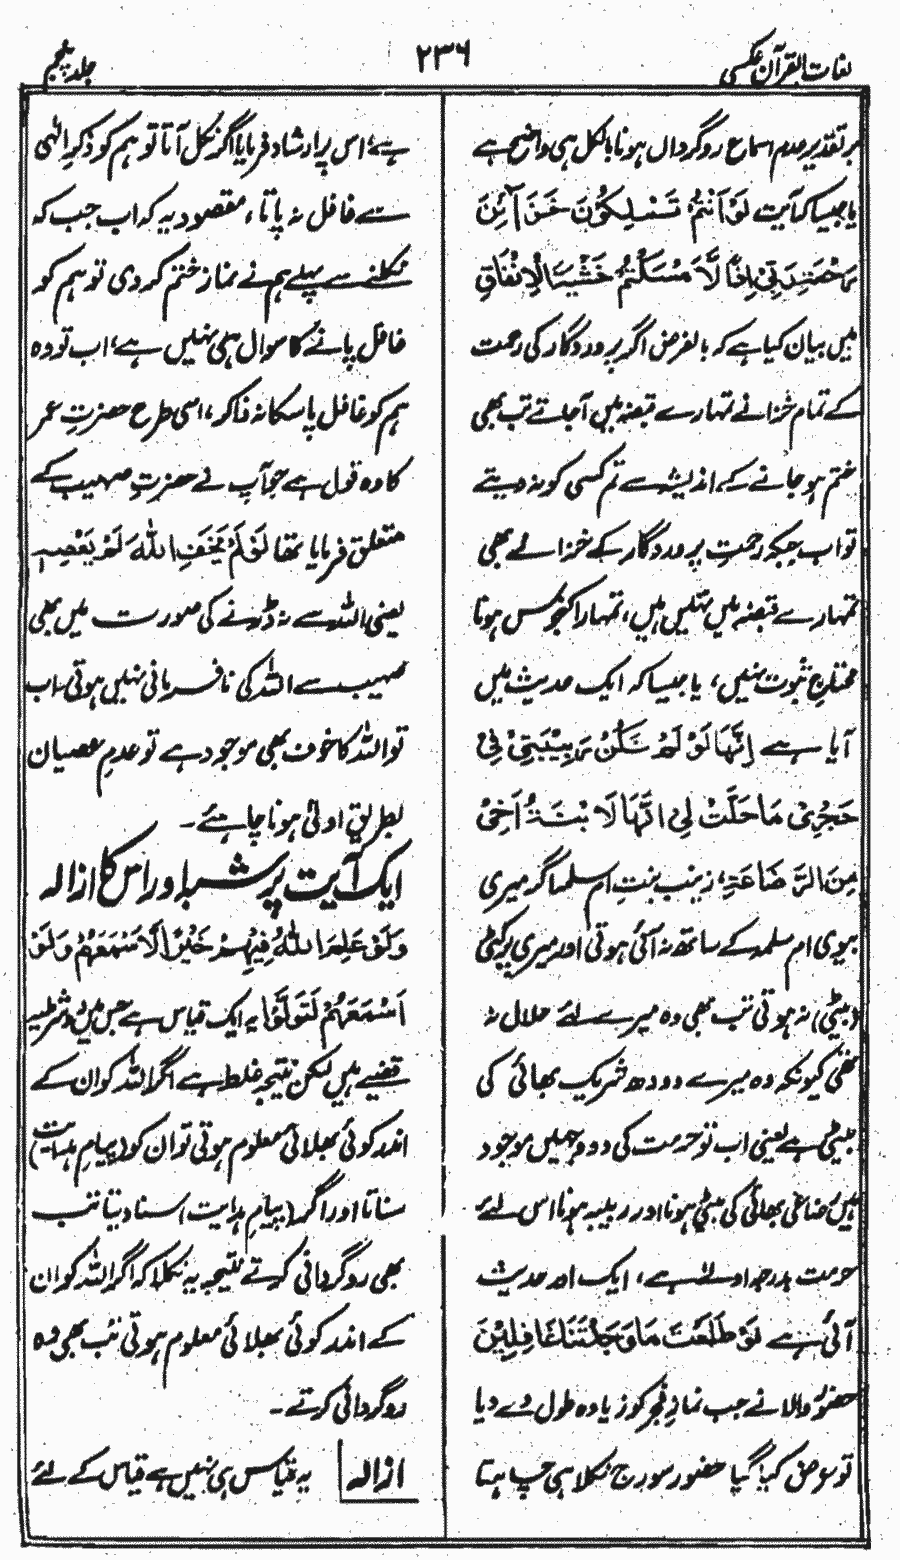 لغات القرآن عکسی
۲۳۶
جلد پنجم
بر تقدیر عدم اسماع روگرداں ہونا بالکل ہی واضح ہے
یا جیسا کہ آیت لَوْ اَنْتُمْ تَمْلِكُوْنَ خَزَآئِنَ
رَحْمَةِ رَبِّيْ اِذًا لَّاَمْسَكْتُمْ خَشْيَةَ الْاِنْفَاقِ
میں بیان کیا ہے کہ بالفرض اگر پروردگار کی رحمت
کے تمام خزانے تمہارے قبضہ میں آجاتے تب بھی
ختم ہو جانے کے اندیشہ سے تم کسی کو نہ دیتے
تو اب جبکہ رحمتِ پروردگار کے خزانے بھی
تمہارے قبضہ میں نہیں ہیں، تمہارا کنجوس ہونا
محتاجِ ثبوت نہیں، یا جیسا کہ ایک حدیث میں
آیا ہے اِنَّهَا لَوْ لَمْ تَكُنْ رَبِيْبَتِيْ فِيْ
حَجْرِيْ مَا حَلَّتْ لِيْ اِنَّهَا لَابْنَةُ اَخِيْ
مِنَ الرَّضَاعَةِ، زینب بنتِ ام سلمہ اگر میری
بیوی ام سلمہ کے ساتھ نہ آئی ہوتی اور میری پرکٹی
(بیٹی) نہ ہوتی تب بھی وہ میرے لئے حلال نہ
تھی کیونکہ وہ میرے دودھ شریک بھائی کی
بیٹی ہے یعنی اب تو حرمت کی دو وجہیں موجود
ہیں رضاعی بھائی کی بیٹی ہونا اور ربیبہ ہونا اس لئے
حرمت بدرجہ اولیٰ ہے، ایک اور حدیث
آئی ہے لَوْ طَلَعَتْ مَا وَجَدْتَنَا غَافِلِيْنَ
حضورِ والا نے جب نماز فجر کو زیادہ طول دے دیا
تو عرض کیا گیا حضور سورج نکلا ہی چاہتا
ہے، اس پر ارشاد فرمایا اگر نکل آتا تو ہم کو ذکرِ الٰہی
سے غافل نہ پاتا، مقصود یہ کہ اب جب کہ
نکلنے سے پہلے ہم نے نماز ختم کر دی تو ہم کو
غافل پانے کا سوال ہی نہیں ہے، اب تو وہ
ہم کو غافل پا سکا نہ ذاکر، اسی طرح حضرتِ عمر
کا وہ قول ہے جو آپ نے حضرتِ صہیب کے
متعلق فرمایا تھا لَوْ لَمْ يَخَفِ اللّٰهَ لَمْ يَعْصِهِ
یعنی اللہ سے نہ ڈرنے کی صورت میں بھی
صہیب سے اللہ کی نافرمانی نہیں ہوتی اب
تو اللہ کا خوف بھی موجود ہے تو عدمِ عصیان
بطریقِ اولیٰ ہونا چاہئے۔
ایک آیت پر شبہ اور اس کا ازالہ
وَلَوْ عَلِمَ اللّٰهُ فِيْهِمْ خَيْرًا لَّاَسْمَعَهُمْ وَلَوْ
اَسْمَعَهُمْ لَتَوَلَّوْا یہ ایک قیاس ہے جس میں دو شرطیہ
قضیے ہیں لیکن نتیجہ غلط ہے اگر اللہ کو ان کے
اندر کوئی بھلائی معلوم ہوتی تو ان کو (پیامِ ہدایت)
سناتا اور اگر (پیامِ ہدایت) سنا دیتا تب
بھی روگردانی کرتے نتیجہ یہ نکلا کہ اگر اللہ کو ان
کے اندر کوئی بھلائی معلوم ہوتی تب بھی وہ
روگردانی کرتے۔
ازالہ یہ قیاس ہی نہیں ہے قیاس کے لئے